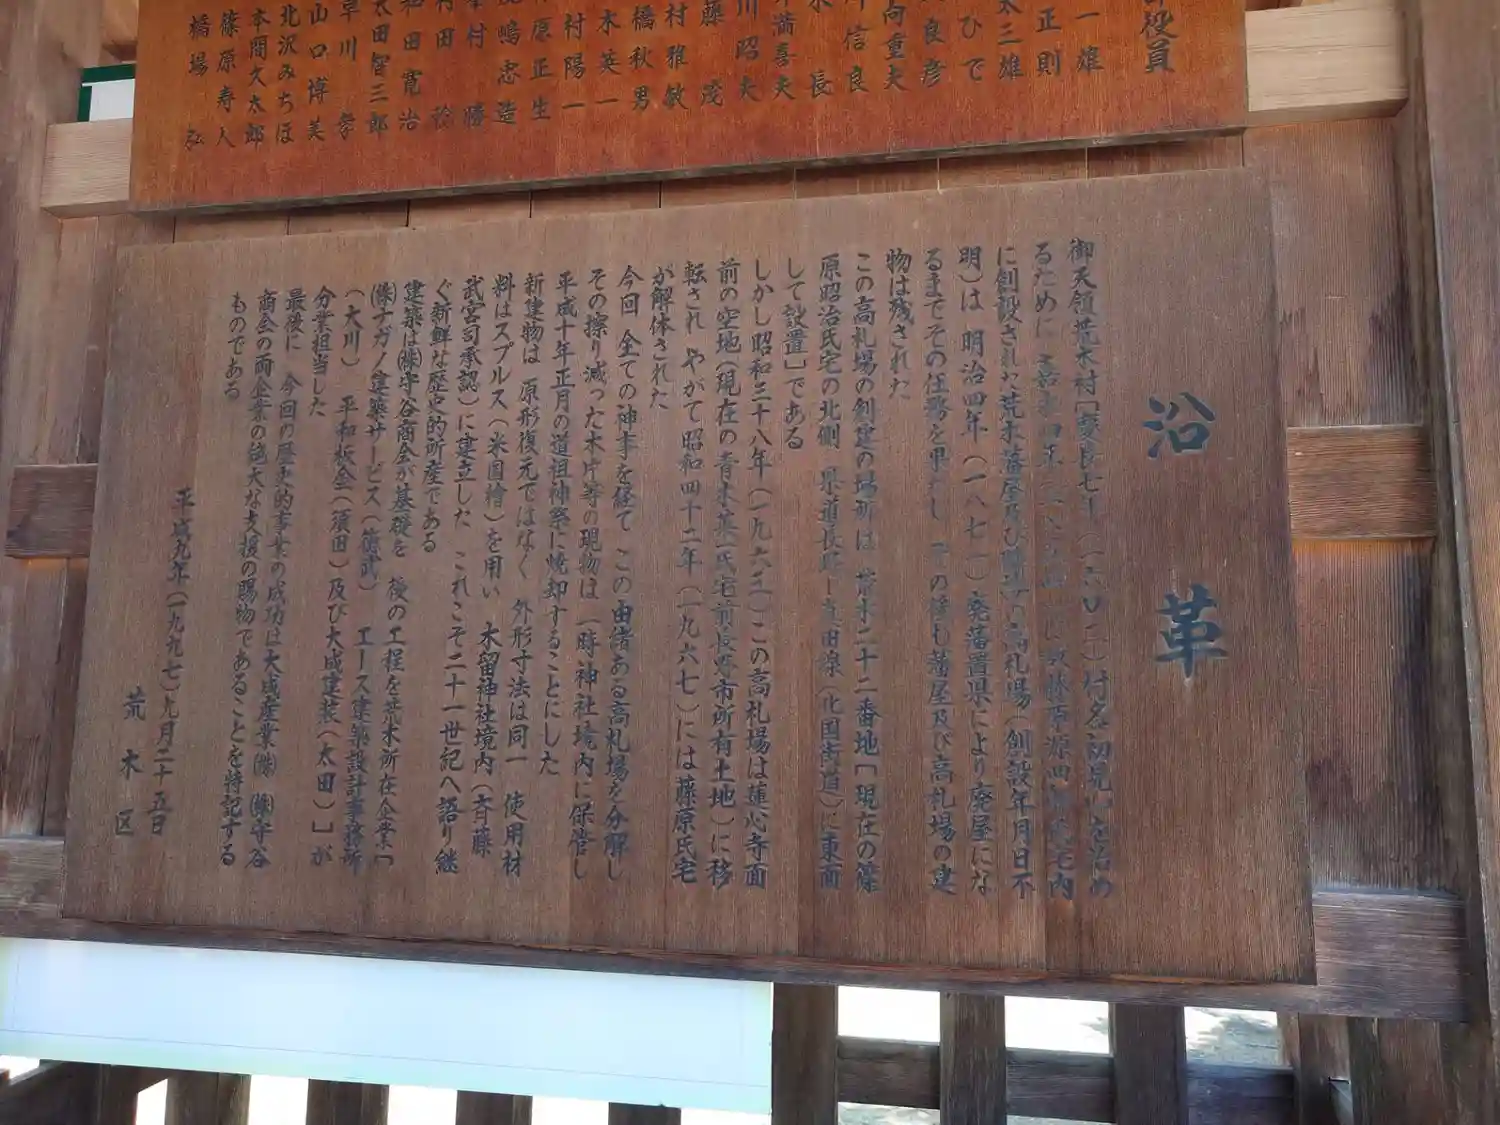 役員
一雄
正則
太三雄
ひで
良彦
向重夫
信良
長
満喜夫
川昭夫
藤茂
村雅敏
橋秋男
木英一
村陽一
原正生
嶋忠造
村勝
村田
和田寛治
太田智三郎
草川孝
山口博美
北沢みちほ
本間久太郎
篠原寿人
橋場弘
沿革
御天領荒木村[慶長七年(一六〇二)村名初見]を治め
るために 嘉永四年
に創設された荒木藩屋及び 高札場(創設年月日不
明)は 明治四年(一八七一)廃藩置県により廃屋にな
るまでその任務を果たし その後も藩屋及び高札場の建
物は残された
この高札場の創建の場所は 荒木二十二番地[現在の篠
原昭治氏宅の北側 県道長野ー真田線(北国街道)に東面
して設置]である
しかし昭和三十八年(一九六三)この高札場は蓮心寺面
前の空地(現在の青木 氏宅前長野市所有土地)に移
転され やがて昭和四十二年(一九六七)には藤原氏宅
が解体された
今回 全ての神事を経て この由緒ある高札場を分解し
その擦り減った木片等の現物は 一時神社境内に保管し
平成十年正月の道祖神祭に焼却することにした
新建物は 原形復元ではなく 外形寸法は同一 使用材
料はスプルス(米国檜)を用い 木留神社境内(斉藤
武宮司承認)に建立した これこそ二十一世紀へ語り継
ぐ新鮮な歴史的所産である
建築は㈱守谷商会が基礎を 後の工程を荒木所在企業[
㈱ナガノ建築サービス( 武) エース建築設計事務所
(大川) 平和板金(須田)及び大成建装(太田)]が
分業担当した
最後に 今回の歴史的事業の成功は大成産業㈱ ㈱守谷
商会の両企業の絶大な支援の賜物であることを特記する
ものである
平成九年(一九九七)九月二十五日
荒木区